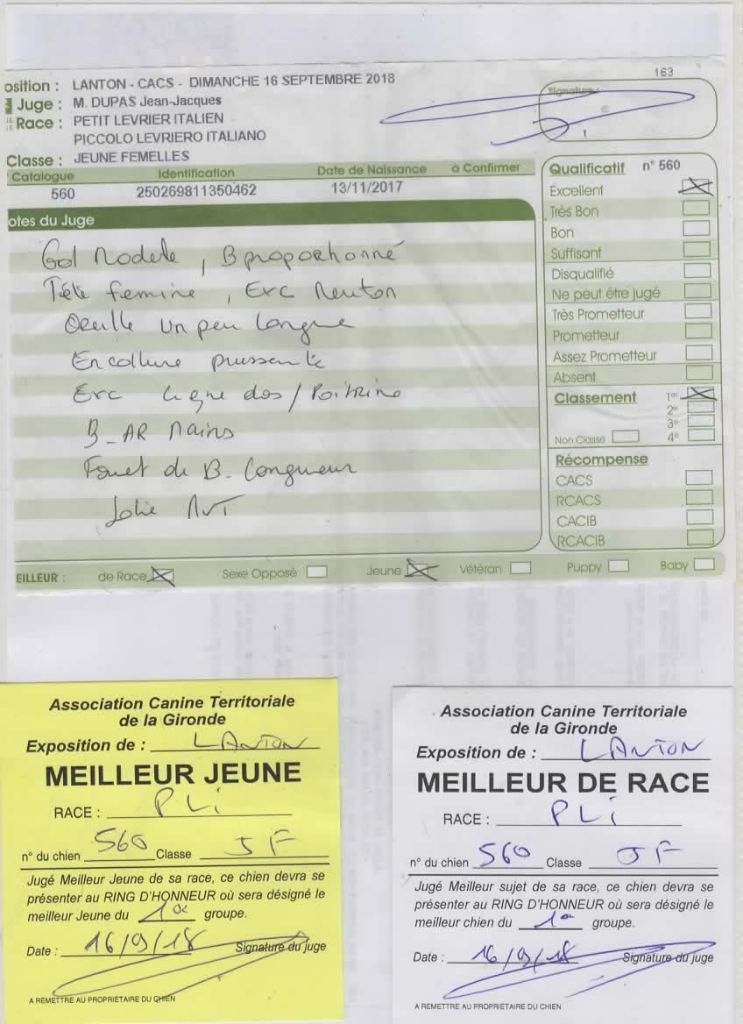 163
osition : LANTON - CACS - DIMANCHE 16 SEPTEMBRE 2018
Juge : M. DUPAS Jean-Jacques
Race : PETIT LEVRIER ITALIEN
PICCOLO LEVRIERO ITALIANO
Classe : JEUNE FEMELLES
Signature
Catalogue Identification Date de Naissance à Confirmer
560 250269811350462 13/11/2017
otes du Juge
Modele, B proportionné
Tête femine, Exc Menton
Oreille un peu longue
Encollure puissante
Exc ligne dos / Poitrine
B_AR Mains
Fouet de B. Longueur
Jolie MvT
Qualificatif n° 560
Excellent
Très Bon
Bon
Suffisant
Disqualifié
Ne peut être jugé
Très Prometteur
Prometteur
Assez Prometteur
Absent
Classement 1er
2e
3e
Non Classé 4e
Récompense
CACS
RCACS
CACIB
RCACIB
EILLEUR : de Race Sexe Opposé Jeune Vétéran Puppy Baby
Association Canine Territoriale
de la Gironde
Exposition de : LANTON
MEILLEUR JEUNE
RACE : PLi
n° du chien 560 Classe JF
Jugé Meilleur Jeune de sa race, ce chien devra se
présenter au RING D'HONNEUR où sera désigné le
meilleur Jeune du groupe.
Date : 16/9/18 Signature du juge
A REMETTRE AU PROPRIETAIRE DU CHIEN
Association Canine Territoriale
de la Gironde
Exposition de : LANTON
MEILLEUR DE RACE
RACE : PLi
n° du chien 560 Classe JF
Jugé Meilleur sujet de sa race, ce chien devra se
présenter au RING D'HONNEUR où sera désigné le
meilleur chien du groupe.
Date : 16/9/18 Signature du juge
A REMETTRE AU PROPRIETAIRE DU CHIEN